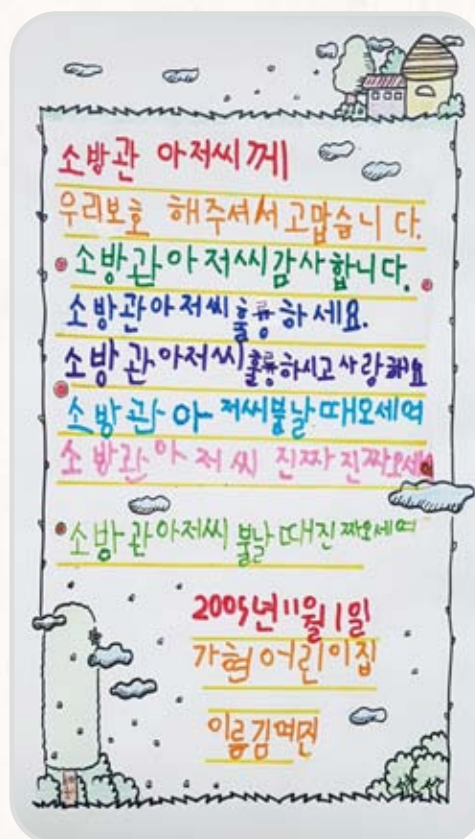 소방관 아저씨께
우리보호 해주셔서 고맙습니다.
소방관아저씨감사합니다.
소방관아저씨훌륭하세요.
소방관아저씨훌륭하시고사랑해요
소방관아저씨불날때오세여
소방관아저씨 진짜진짜오세여
소방관아저씨불날때진짜오세여
2005년11월1일
가현어린이집
이름김여진